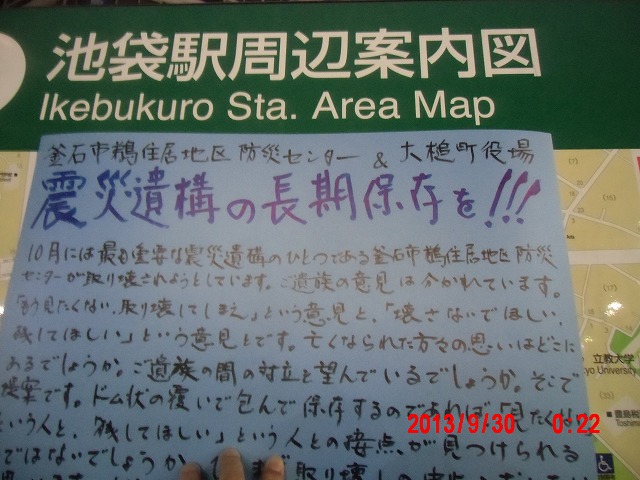 池袋駅周辺案内図
Ikebukuro Sta. Area Map
釜石市鵜住居地区防災センター & 大槌町役場
震災遺構の長期保存を!!!
10月には最も重要な震災遺構のひとつである釜石市鵜住居地区防災
センターが取り壊されようとしています。ご遺族の意見は分かれています。
「もう見たくない、取り壊してしまえ」という意見と、「壊さないでほしい、
残してほしい」という意見とです。亡くなられた方々の思いはどこに
あるでしょうか。ご遺族の間の対立を望んでいるでしょうか。そこで
提案です。ドーム状の覆いで包んで保存するのであれば「見たくな
という人と、残してほしい」という人との接点が見つけられる
ではないでしょうか
取り壊し
立教大学
yo University
Toshima
(7)
(15)
2013/9/30 0:22